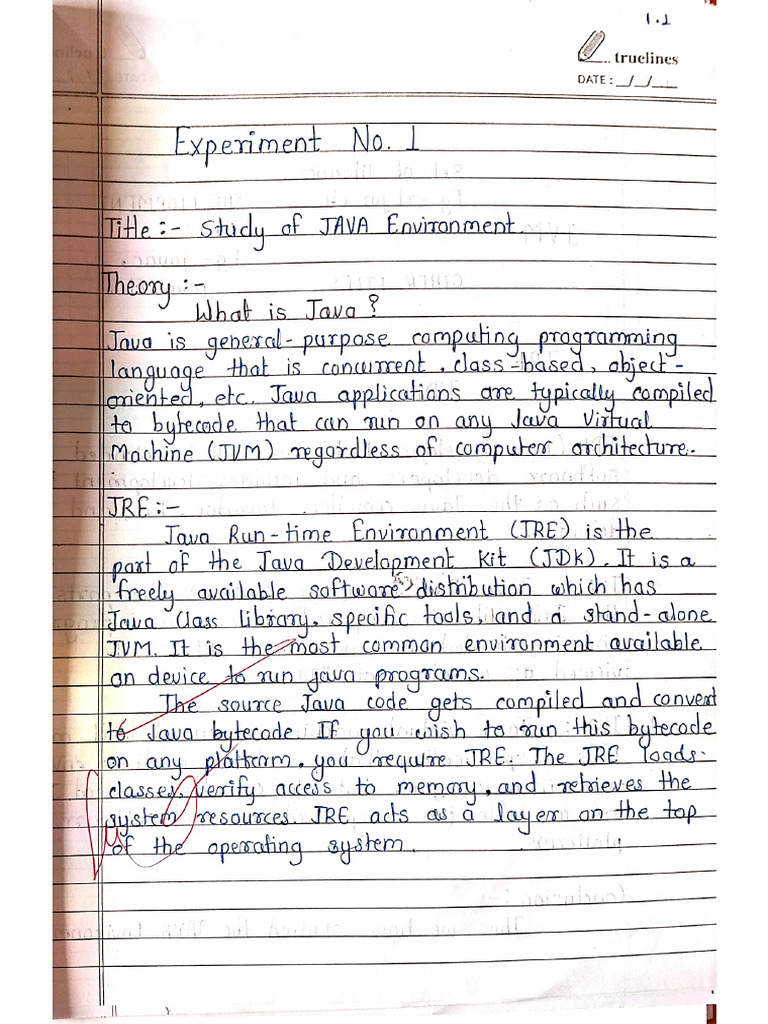 1.1
truelines
DATE: __/__/___
Experiment No. 1
Title :- Study of JAVA Environment.
Theory :-
What is Java?
Java is general-purpose computing programming
language that is concurrent, class-based, object-
oriented, etc. Java applications are typically compiled
to bytecode that can run on any Java Virtual
Machine (JVM) regardless of computer architecture.
JRE :-
Java Run-time Environment (JRE) is the
part of the Java Development Kit (JDK). It is a
freely available software distribution which has
Java Class library, specific tools, and a stand-alone
JVM. It is the most common environment available
on device to run java programs.
The source Java code gets compiled and convert
to Java bytecode. If you wish to run this bytecode
on any platform, you require JRE. The JRE loads
classes, verify access to memory, and retrieves the
system resources. JRE acts as a layer on the top
of the operating system.